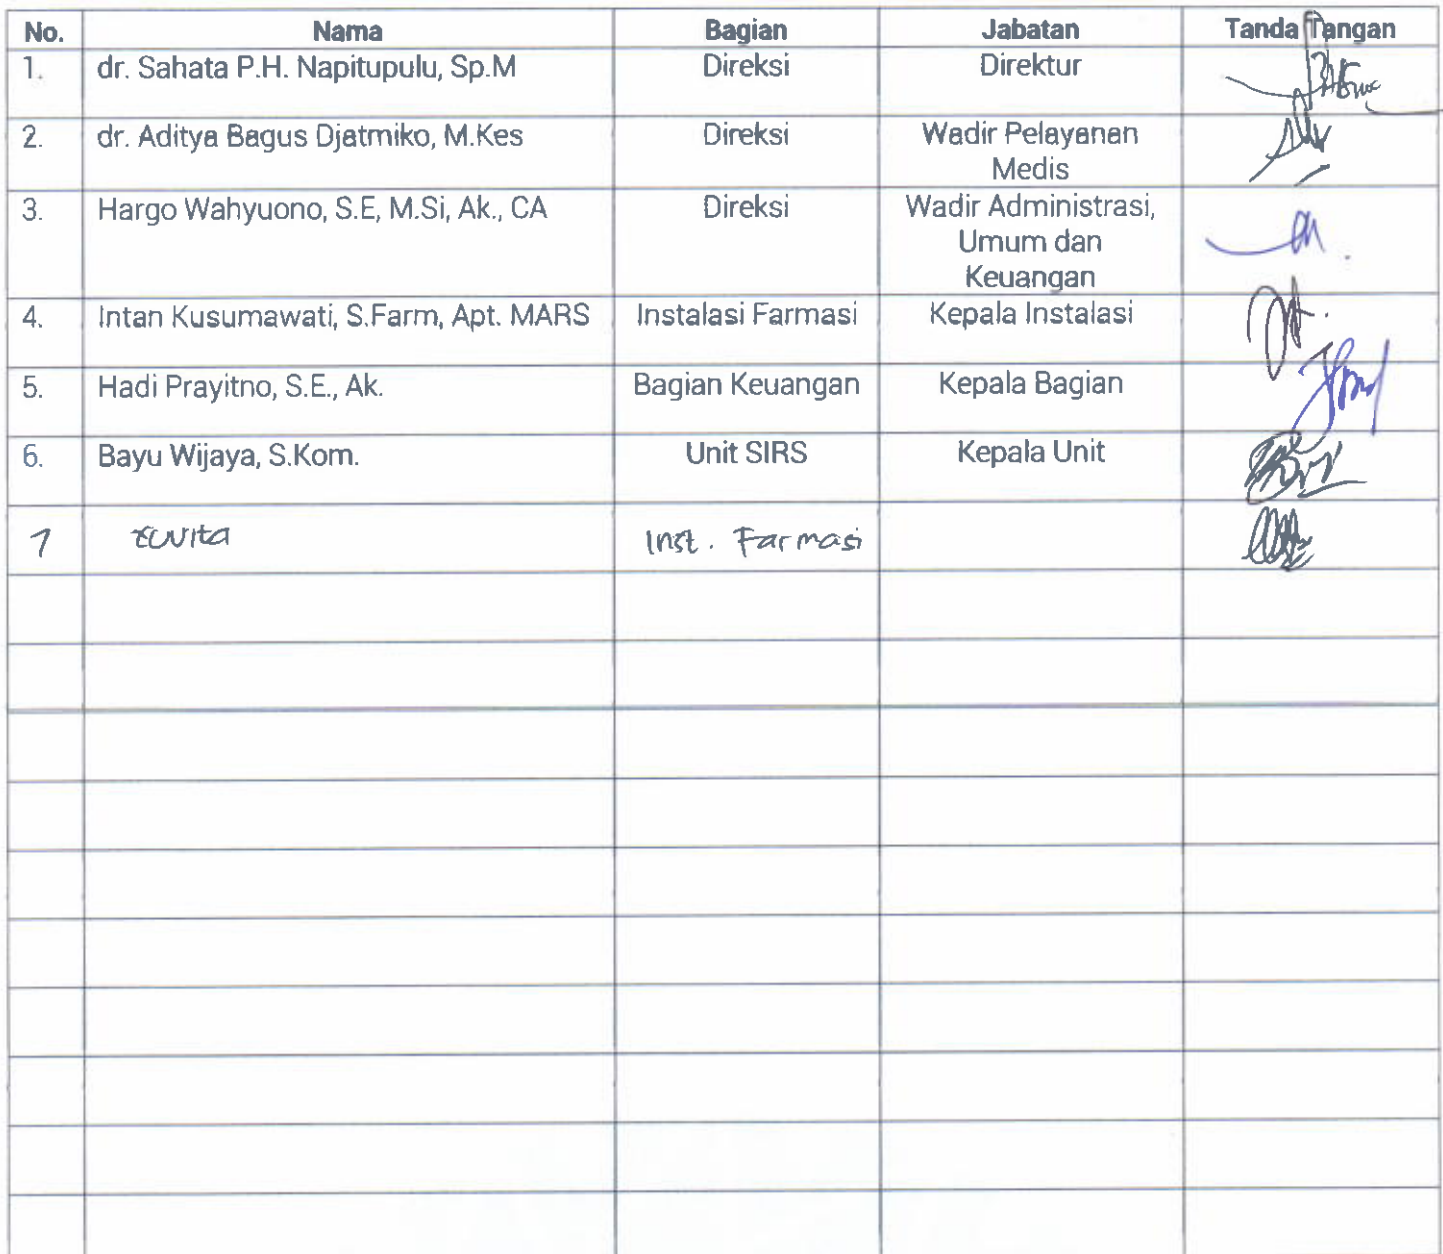 No. Nama Bagian Jabatan Tanda Tangan
1. dr. Sahata P.H. Napitupulu, Sp.M Direksi Direktur
2. dr. Aditya Bagus Djatmiko, M.Kes Direksi Wadir Pelayanan
Medis
3. Hargo Wahyuono, S.E, M.Si, Ak., CA Direksi Wadir Administrasi,
Umum dan
Keuangan
4. Intan Kusumawati, S.Farm, Apt. MARS Instalasi Farmasi Kepala Instalasi
5. Hadi Prayitno, S.E., Ak. Bagian Keuangan Kepala Bagian
6. Bayu Wijaya, S.Kom. Unit SIRS Kepala Unit
7 Inst. Farmasi